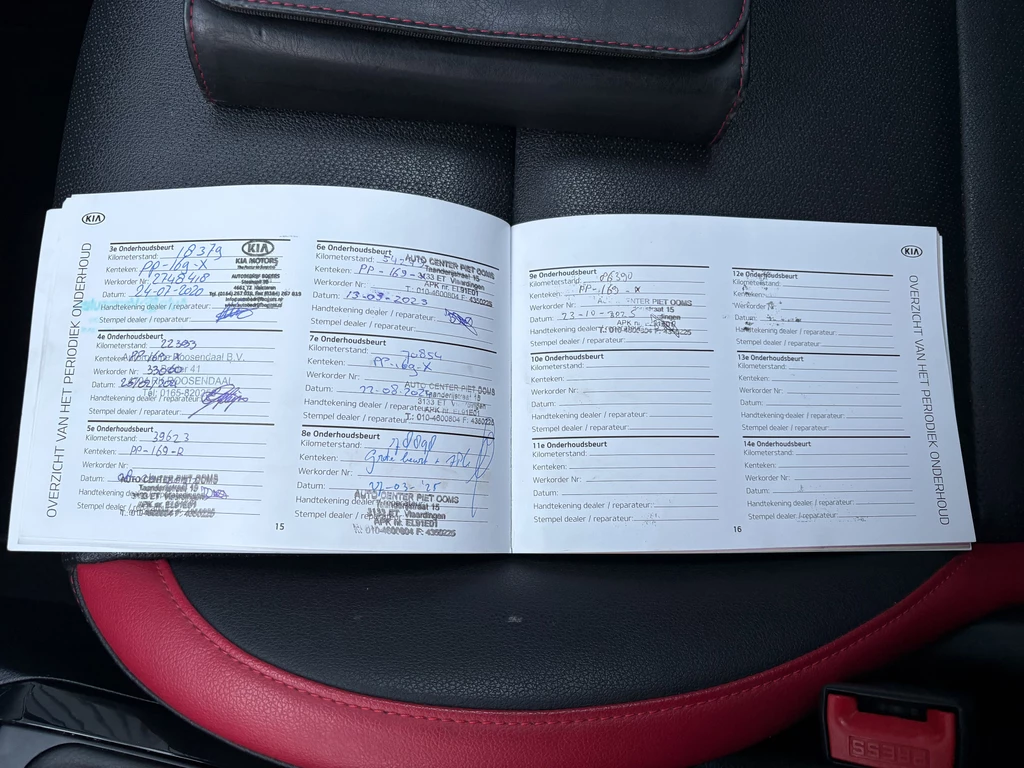 KIA
OVERZICHT VAN HET PERIODIEK ONDERHOUD
3e Onderhoudsbeurt
Kilometerstand: 18379
Kenteken: PP-169-X
Werkorder Nr:
Datum: 24-07-2020
Handtekening dealer / reparateur:
Stempel dealer / reparateur:
KIA
KIA MOTORS
4e Onderhoudsbeurt
Kilometerstand: 22393
Kenteken: PP-169-X
Werkorder Nr:
Datum:
Handtekening dealer / reparateur:
Stempel dealer / reparateur:
Roosendaal B.V.
ROOSENDAAL
5e Onderhoudsbeurt
Kilometerstand: 39623
Kenteken: PP-169-R
Werkorder Nr:
Datum:
Handtekening
Stempel dealer / reparateur:
AUTO CENTER PIET OOMS
15
6e Onderhoudsbeurt
Kilometerstand:
Kenteken: PP-169-X
Werkorder Nr:
Datum: 13-09-2023
Handtekening dealer / reparateur:
Stempel dealer / reparateur:
AUTO CENTER PIET OOMS
Taanderijstraat 15
3133 ET Vlaardingen
APK Nr. EL91E01
T: 010-4600804 F: 4350225
7e Onderhoudsbeurt
Kilometerstand: 70854
Kenteken: PP-169-X
Werkorder Nr:
Datum: 22-08-2024
Handtekening dealer / reparateur:
Stempel dealer / reparateur:
AUTO CENTER PIET OOMS
Taanderijstraat 15
3133 ET Vlaardingen
APK Nr. EL91E01
T: 010-4600804 F: 4350225
8e Onderhoudsbeurt
Kilometerstand:
Kenteken: Grote beurt + APK
Werkorder Nr:
Datum: 21-03-'25
Handtekening dealer
Stempel dealer / reparateur:
AUTO CENTER PIET OOMS
Taanderijstraat 15
3133 ET Vlaardingen
APK Nr. EL91E01
T: 010-4600804 F: 4350225
KIA
OVERZICHT VAN HET PERIODIEK ONDERHOUD
9e Onderhoudsbeurt
Kilometerstand: 86390
Kenteken: PP-169-X
Werkorder Nr:
Datum: 23-10-2025
Handtekening dealer
Stempel dealer / reparateur:
CENTER PIET OOMS
T: 010-4600804
10e Onderhoudsbeurt
Kilometerstand:
Kenteken:
Werkorder Nr:
Datum:
Handtekening dealer / reparateur:
Stempel dealer / reparateur:
11e Onderhoudsbeurt
Kilometerstand:
Kenteken:
Werkorder Nr:
Datum:
Handtekening dealer / reparateur:
Stempel dealer / reparateur:
16
12e Onderhoudsbeurt
Kilometerstand:
Kenteken:
Werkorder Nr:
Datum:
Handtekening dealer / reparateur:
Stempel dealer / reparateur:
13e Onderhoudsbeurt
Kilometerstand:
Kenteken:
Werkorder Nr:
Datum:
Handtekening dealer / reparateur:
Stempel dealer / reparateur:
14e Onderhoudsbeurt
Kilometerstand:
Kenteken:
Werkorder Nr:
Datum:
Handtekening dealer / reparateur:
Stempel dealer / reparateur:
PRESS